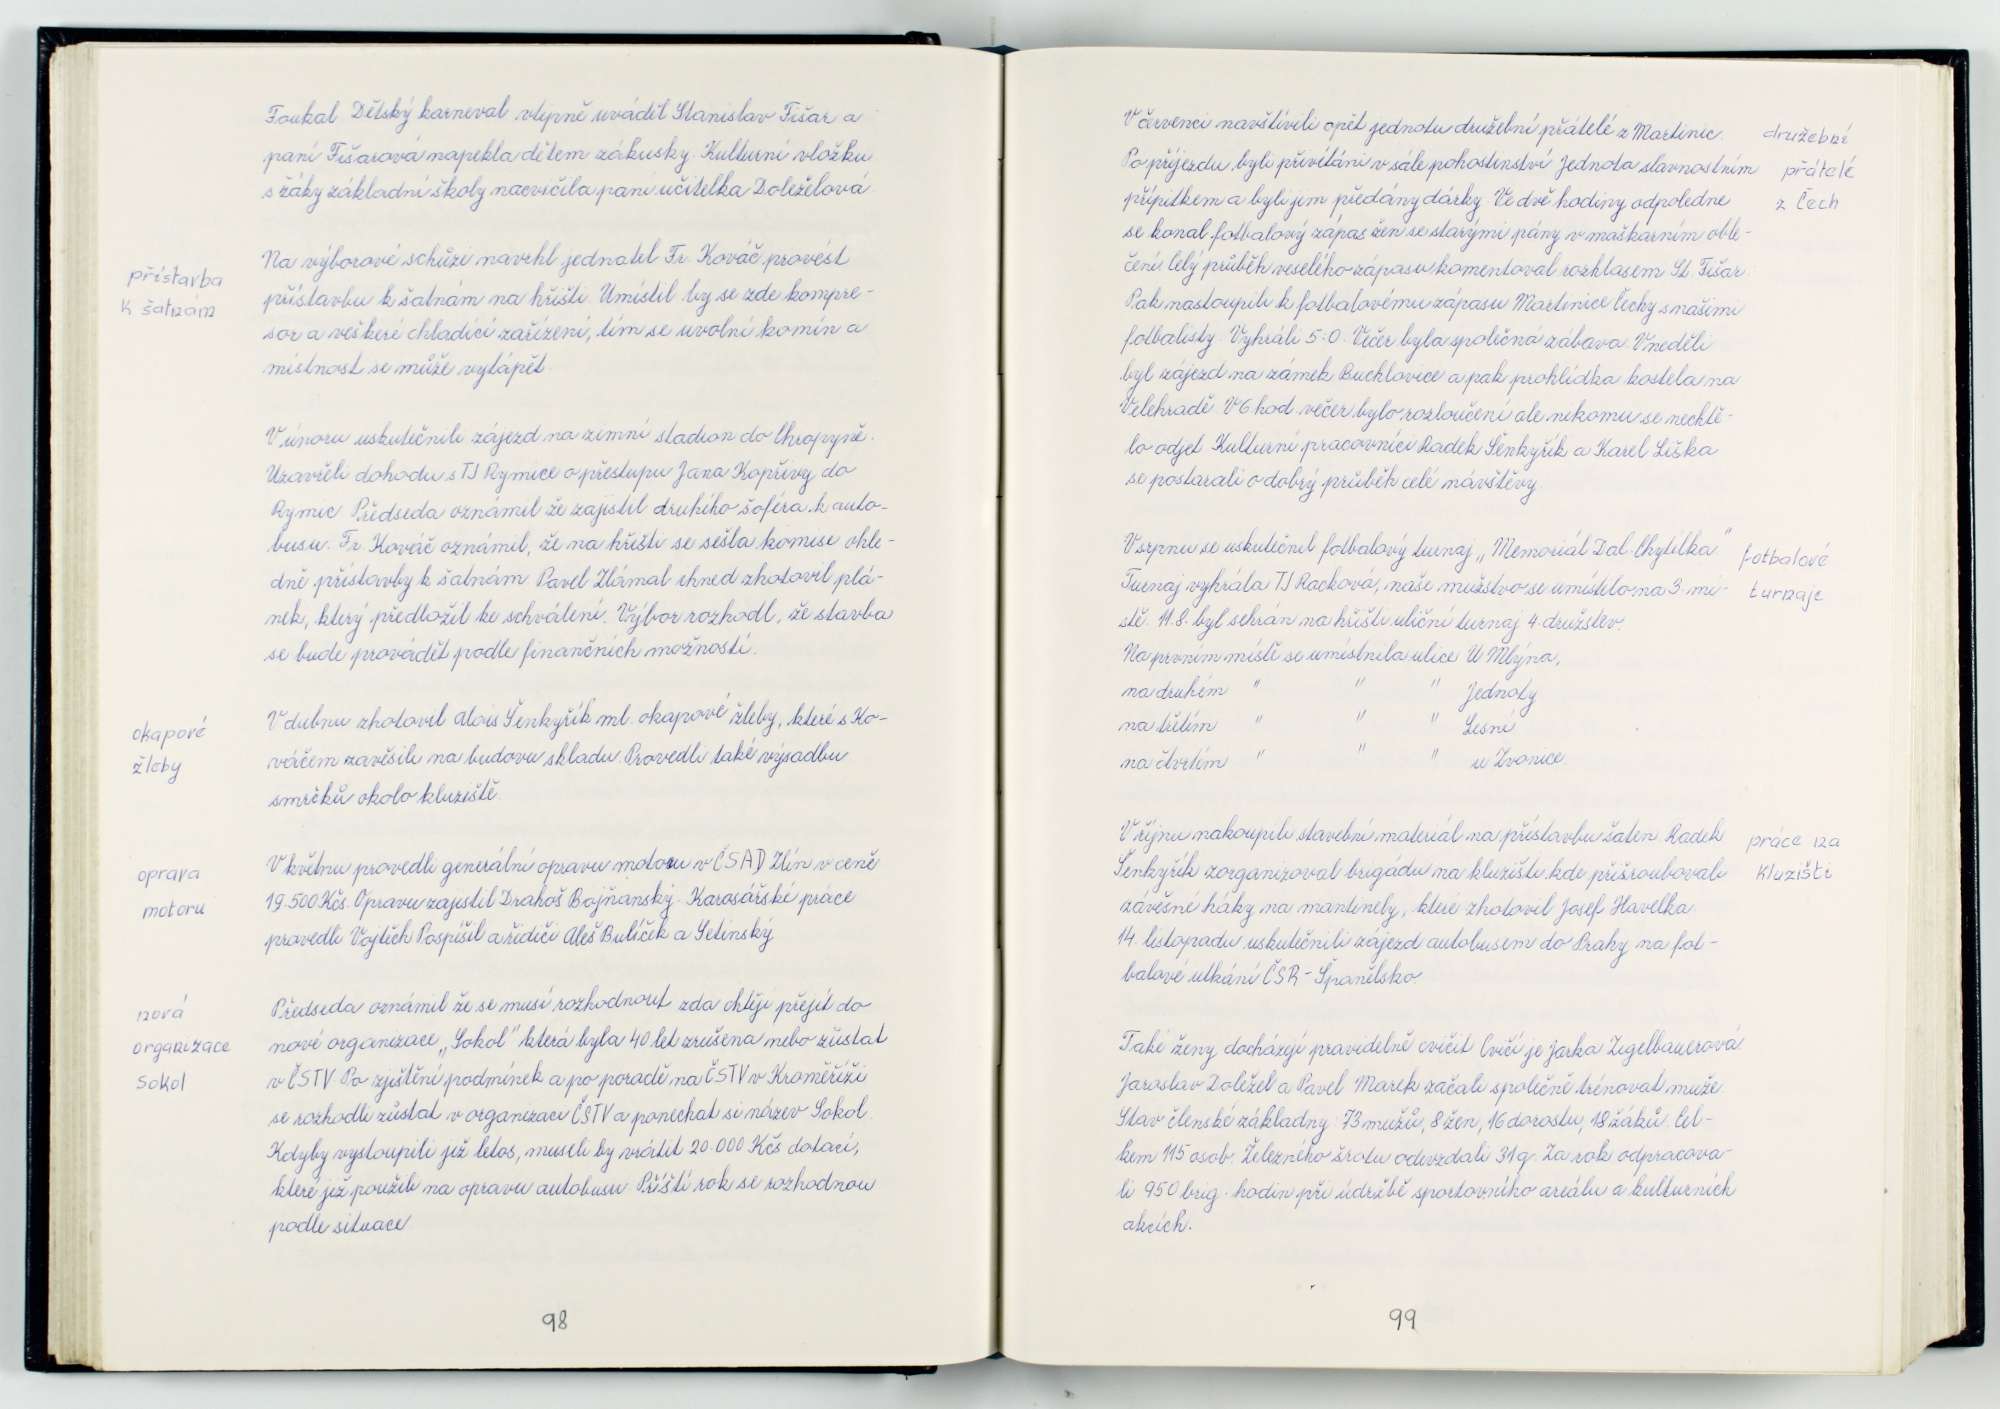 Foukal Dětský karneval vtipně uváděl Stanislav Fišar a
paní Fišarová napekla dětem zákusky. Kulturní vložku
s žáky základní školy nacvičila paní učitelka Doleželová
přístavba
k šatnám
Na výborové schůzi navrhl jednatel Fr. Kováč provést
přístavbu k šatnám na hřišti. Umístil by se zde kompre-
sor a veškeré chladící zařízení, tím se uvolní komín a
místnost se může vytápět.
V únoru uskutečnili zájezd na zimní stadion do Chropyně.
Uzavřeli dohodu s TJ Rymice o přestupu Jana Kopřivy do
Rymic Předseda oznámil že zajistil druhého šoféra k auto-
busu. Fr. Kováč oznámil, že na hřišti se sešla komise ohle-
dně přístavby k šatnám Pavel Zlámal ihned zhotovil plá-
nek, který předložil ke schválení. Výbor rozhodl, že stavba
se bude provádět podle finančních možností.
okapové
žleby
V dubnu zhotovil Alois Šenkyřík ml. okapové žleby, které s Ko-
váčem zavěsili na budovu skladu. Provedli také výsadbu
smrčků okolo kluziště.
oprava
motoru
V květnu provedli generální opravu motoru v ČSAD Zlín v ceně
19.500 Kčs. Opravu zajistil Drahoš Bojňanský. Karosářské práce
provedli Vojtěch Pospíšil a řidiči Aleš Bulíček a Setinský
nová
organizace
Sokol
Předseda oznámil že se musí rozhodnout zda chtějí přejít do
nové organizace „Sokol" která byla 40 let zrušena nebo zůstat
v ČSTV Po zjištění podmínek a po poradě na ČSTV v Kroměříži
se rozhodli zůstat v organizaci ČSTV a ponechat si název Sokol.
Kdyby vystoupili již letos, museli by vrátit 20.000 Kčs dotaci,
které již použili na opravu autobusu. Příští rok se rozhodnou
podle situace
98
V červenci navštívili opět jednotu družební přátelé z Martinic.
Po příjezdu byli přivítáni v sále pohostinství Jednota slavnostním
přípitkem a byli jim předány dárky. Ve dvě hodiny odpoledne
se konal fotbalový zápas žen se starými pány v maškarním oble-
čení Celý průběh veselého zápasu komentoval rozhlasem St. Fišar.
Pak nastoupili k fotbalovému zápasu Martinice Čechy s našimi
fotbalisty. Vyhráli 5:0. Večer byla společná zábava. V neděli
byl zájezd na zámek Buchlovice a pak prohlídka kostela na
Velehradě V 6 hod. večer bylo rozloučení ale nikomu se nechtě-
lo odjet Kulturní pracovníci Radek Šenkyřík a Karel Liška
se postarali o dobrý průběh celé návštěvy.
družební
přátelé
z Čech
V srpnu se uskutečnil fotbalový turnaj „Memoriál Dal. Chytilka"
Turnaj vyhrála TJ Racková, naše mužstvo se umístilo na 3. mí-
stě. 11.8. byl sehrán na hřišti uliční turnaj 4. družstev.
Na prvním místě se umístnila ulice U Mlýna,
na druhém " " " Jednoty
na třetím " " " Lesní
na čtvrtém " " " u Zvonice.
fotbalové
turnaje
V říjnu nakoupili stavební materiál na přístavbu šaten. Radek
Šenkyřík zorganizoval brigádu na kluzišti kde přišroubovali
závěsné háky na mantinely, které zhotovil Josef Havelka
14. listopadu uskutečnili zájezd autobusem do Prahy na fot-
balové utkání ČSR - Španělsko.
práce na
kluzišti
Také ženy docházejí pravidelně cvičit Cvičí je Jarka Zigelbauerová
Jaroslav Doležel a Pavel Marek začali společně trénovat muže.
Stav členské základny: 73 mužů, 8 žen, 16 dorostu, 18 žáků. Cel-
kem 115 osob. Železného šrotu odevzdali 31 q. Za rok odpracova-
li 950 brig. hodin při údržbě sportovního areálu a kulturních
akcích.
99